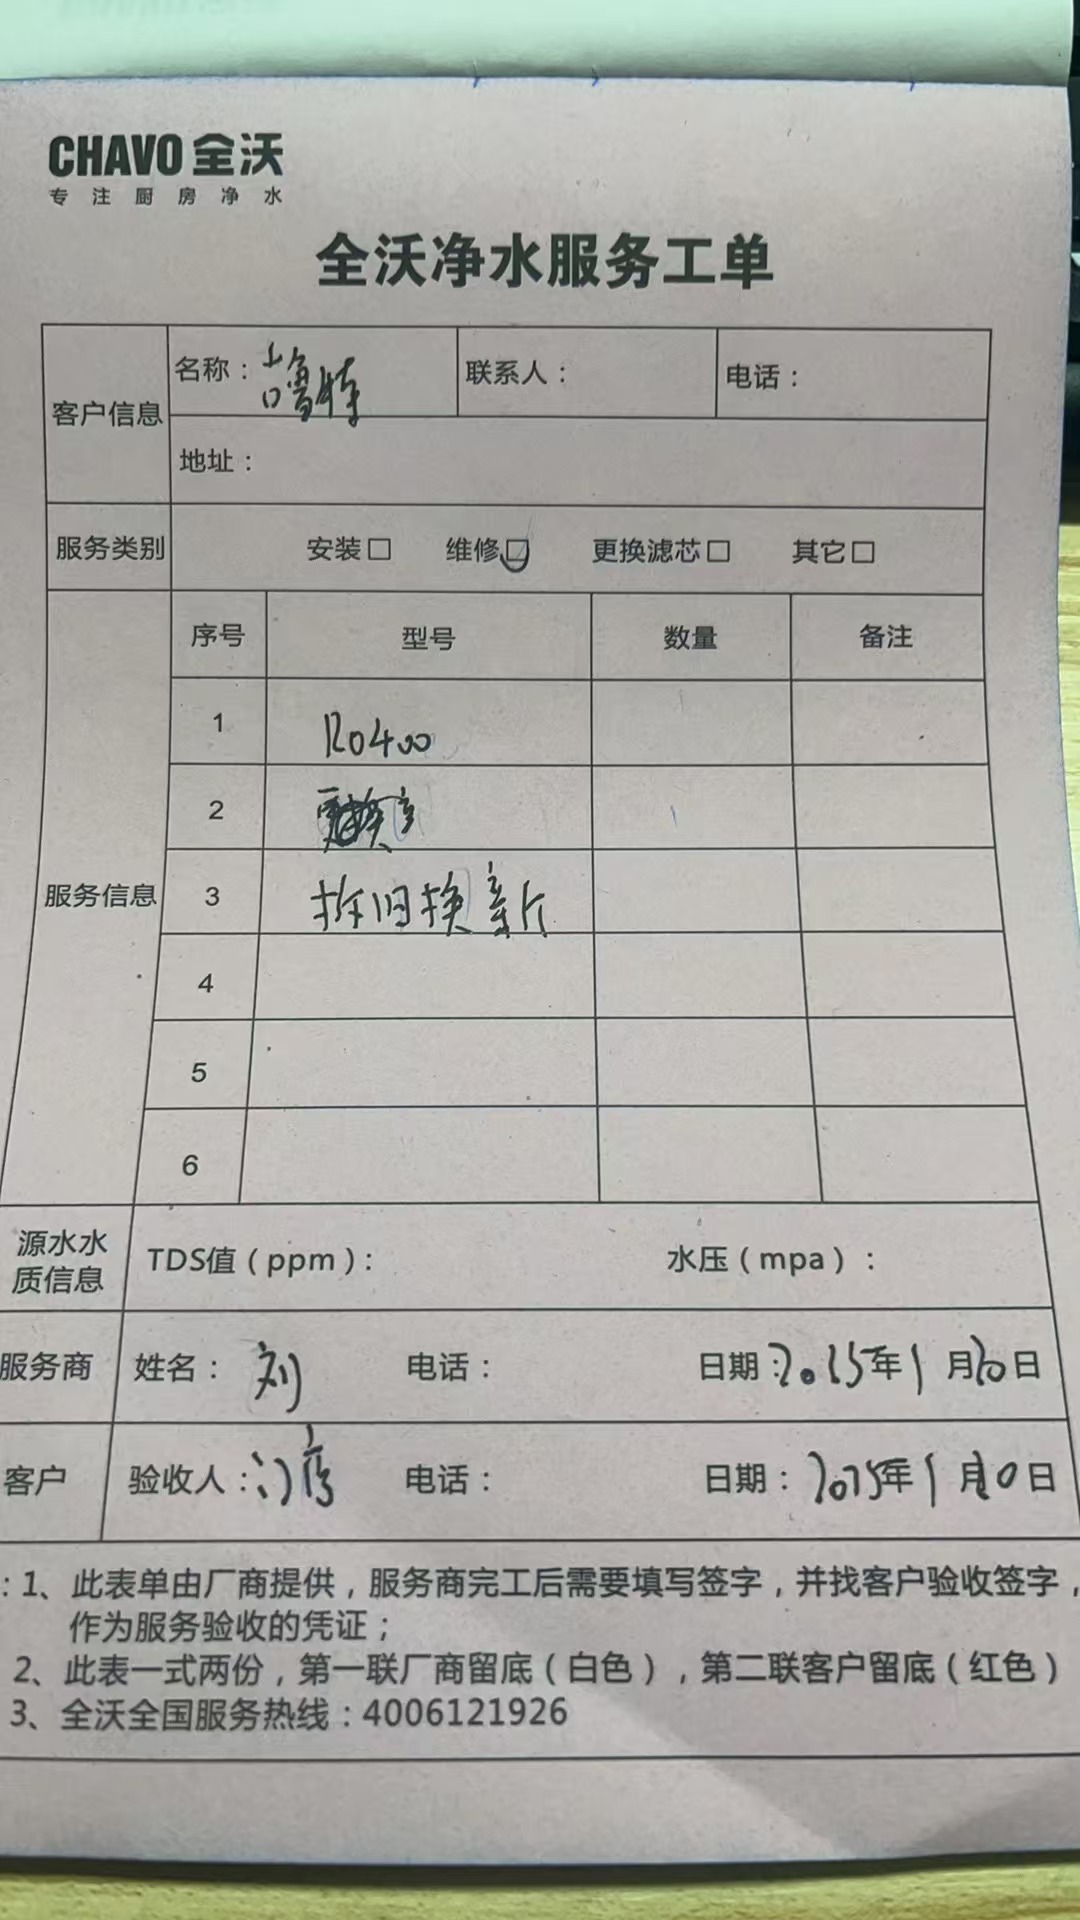 CHAVO 全沃
专注厨房净水
全沃净水服务工单
客户信息
名称：噜特
联系人：
电话：
地址：
服务类别
安装□ 维修□ 更换滤芯□ 其它□
服务信息
序号 型号 数量 备注
1 RO400
2
3 拆旧换新
4
5
6
源水水质信息
TDS值（ppm）： 水压（mpa）：
服务商 姓名：刘 电话： 日期：2025年1月20日
客户 验收人：门店 电话： 日期：2025年1月 日
：1、此表单由厂商提供，服务商完工后需要填写签字，并找客户验收签字，
作为服务验收的凭证；
2、此表一式两份，第一联厂商留底（白色），第二联客户留底（红色）
3、全沃全国服务热线：4006121926